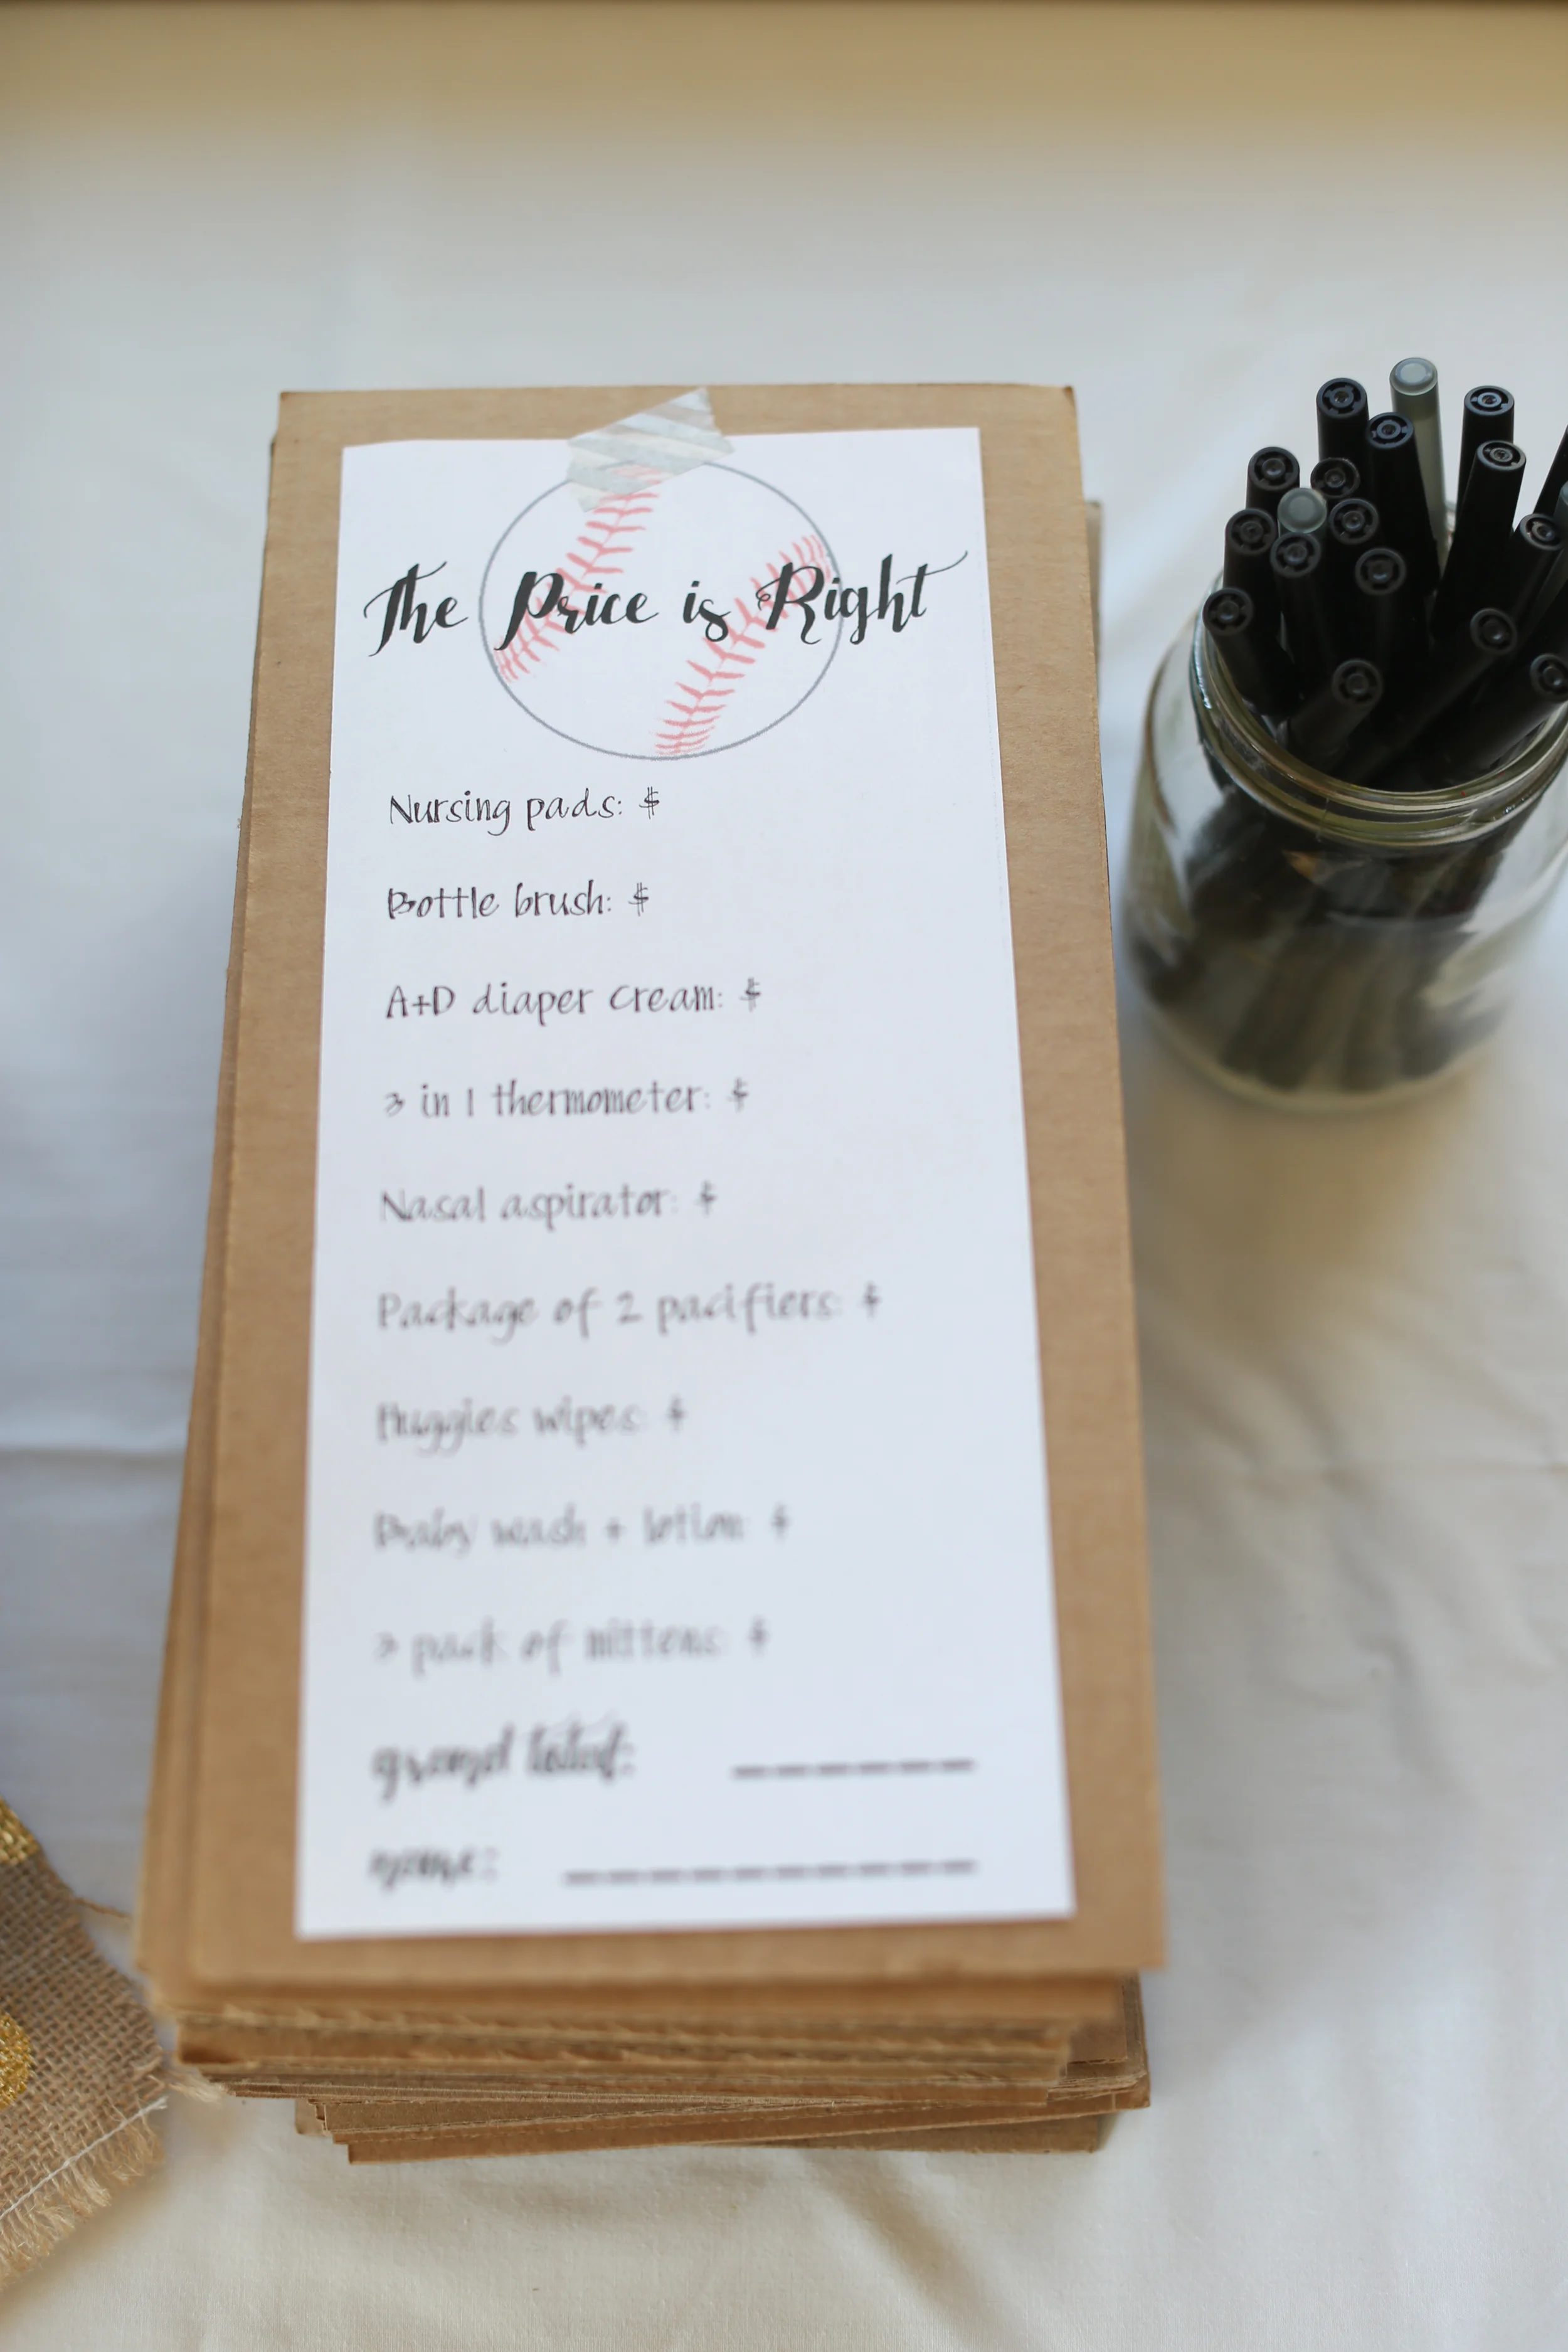 The Price is Right
Nursing pads: $
Bottle brush: $
A+D diaper cream: $
3 in 1 thermometer: $
Nasal aspirator: $
Package of 2 pacifiers: $
Huggies wipes: $
Baby wash + lotion: $
3 pack of mittens: $
grand total:
name: